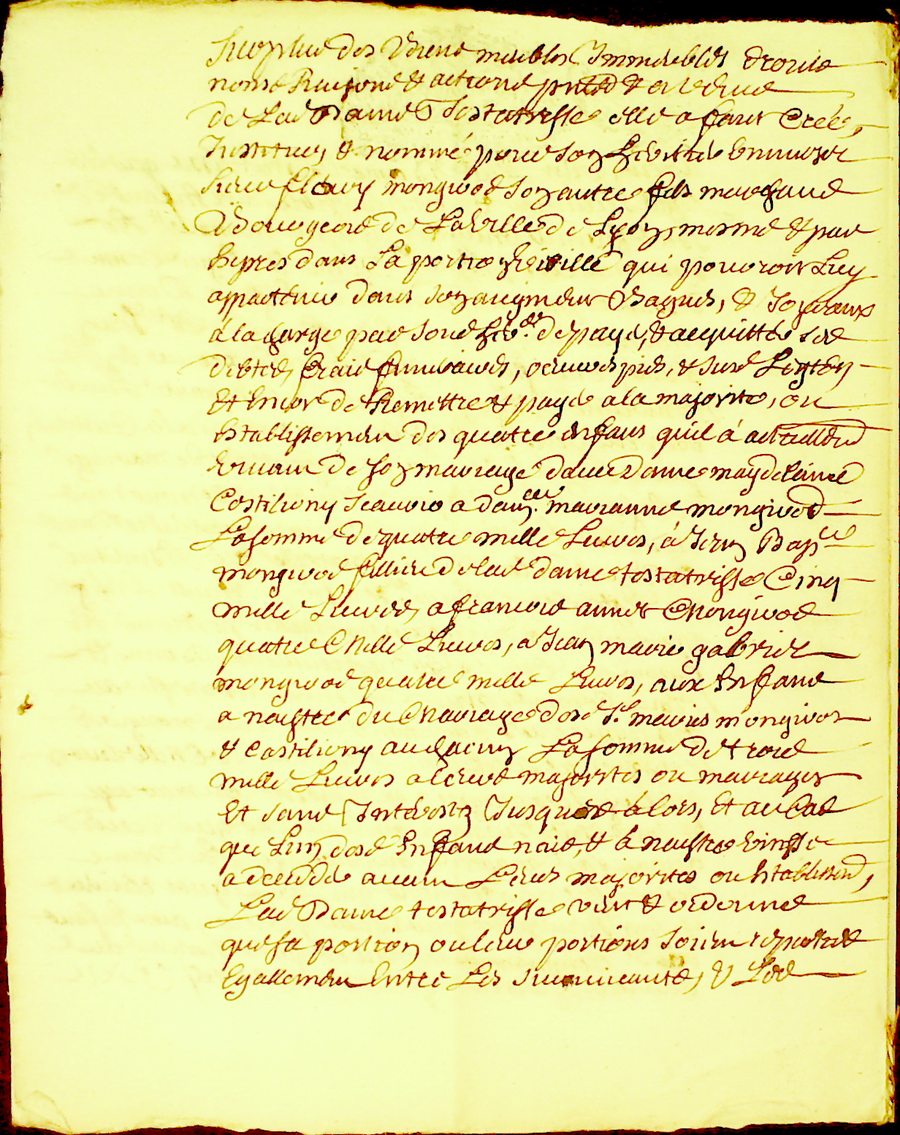 Surplus des Biens meubles Immeubles droits
noms Raisons & actions pnts & avenir
de Lad Dame Testatrisse elle a fait Créé,
Institué, & nommé pour son heritié universel
Sieur fleury mongirod son autre fils marchand
Bourgeois de La Ville de Lyon, mesme & par
exprès dans La portion qui pouvoit Luy
appartenir dans son augment Bagues, & Joyaux
a la charge par sond her.er de payé, & acquitté ses
dettes, frais funeraires, oeuvres pies, & susd Legts
Et encor de Remettre & payé a la majorité, ou
establissement des quatre enfans quil á actuellemt
vivant de son mariage avec Dame magdelaine
Castiliony scavoir a dem.lle marianne mongirod
La somme de quatre mille Livres, á Jean Bap.te
mongirod filliol de lad dame testatrisse Cinq
mille Livres, a francois aimé Mongirod
quatre Mille Livres, a Jean marie gabriel
mongirod quatre mille Livres, aux Enfans
a naistre du Mariage desd S.r mariés mongirod
& Castiliony a chacun La somme de trois
mille Livres a Leurs majorités ou mariages
Et sans Interests Jusques alors, Et au Cas
que Lun desd Enfans nais, & á naistre vinsse
a deceddé avant Leurs majorités ou Establissemt,
Lad Dame testatrisse veut & ordonne
que sa portion ou leurs portions soient reparties
Egallement Entre Les survivants, & Les